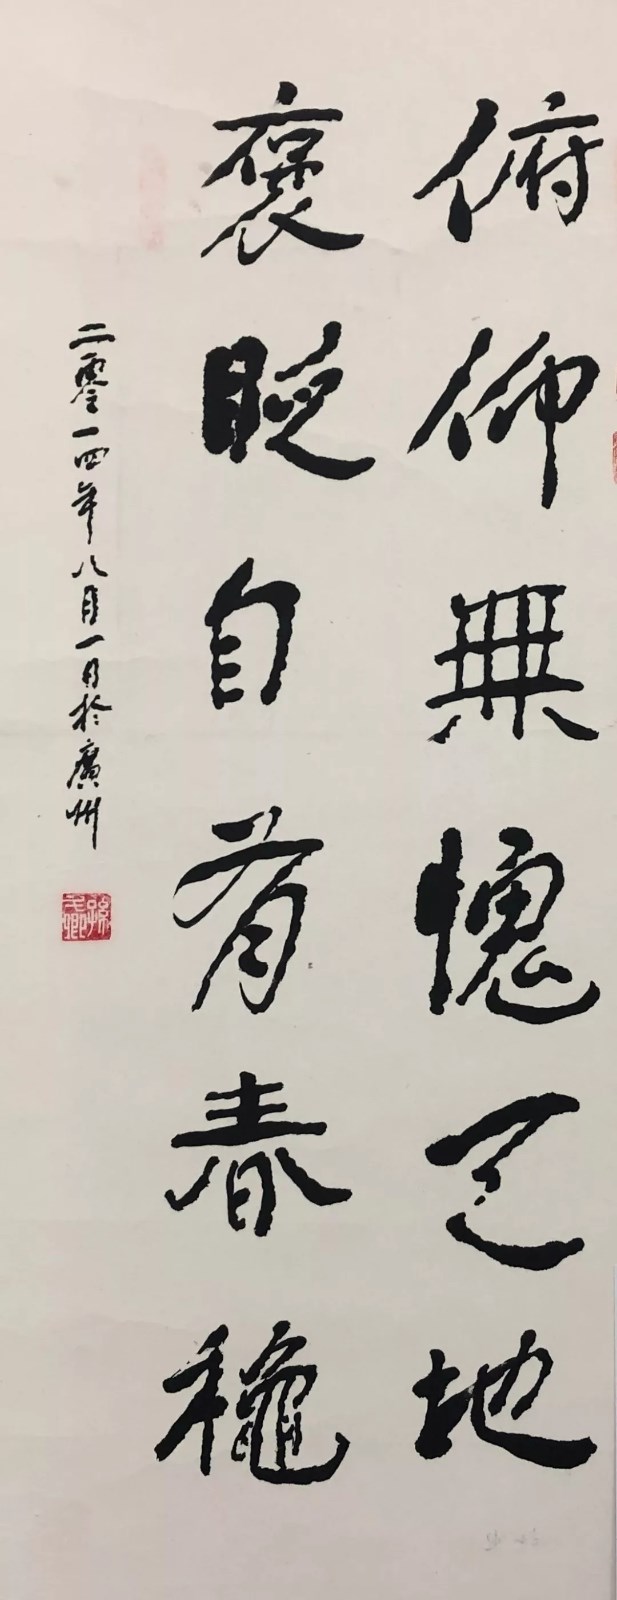 俯仰無愧天地
褒貶自有春穐
二零一四年八月一日於廣州